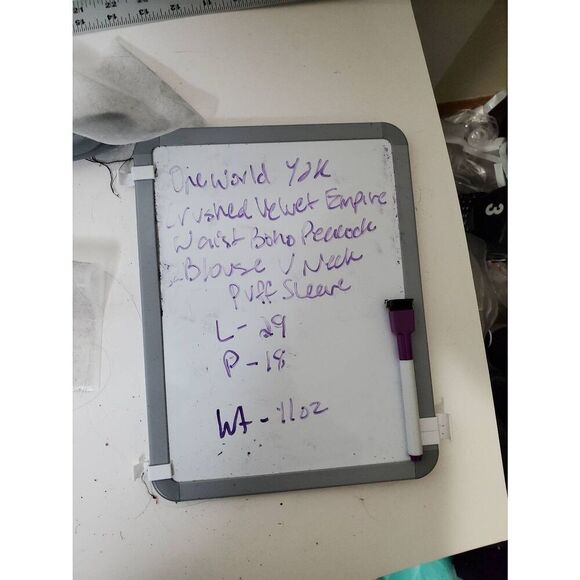 15 14 13 12
One World Y2K
Crushed Velvet Empire
Waist Boho Peacock
Blouse V Neck
Puff Sleeve
L-29
P-18
Wt-11oz
3